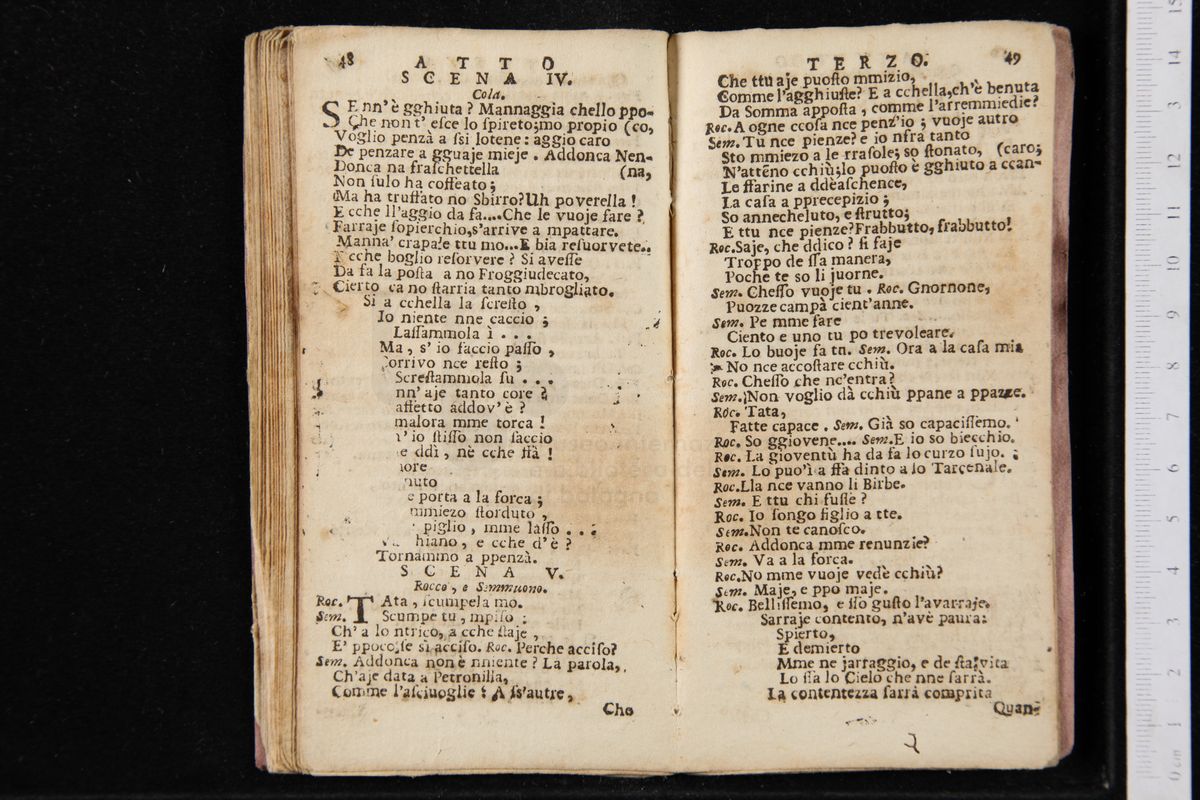 48
ATTO
SCENA IV.
Cola.
SE nn'è gghiuta? Mannaggia chello ppo-
Che non t'esce lo spireto; mo propio (co,
Voglio penzà a ssi lotene: aggio caro
De penzare a gguaje mieje. Addonca Nen-
Donca na fraschettella (na,
Non sulo ha coffeato;
Ma ha truffato no Sbirro? Uh poverella!
E cche ll'aggio da fa....Che le vuoje fare?
Farraje sopierchio, s'arrive a mpattare.
Manna' crapaje ttu mo...E bia resuorvete..
cche boglio resorvere? Si avesse
Da fa la posta a no Froggiudecato,
Cierto ca no starria tanto mbrogliato.
Si a cchella la scresto,
Io niente nne caccio;
Lassammola ì...
Ma, s'io faccio passo,
orrivo nce resto;
Screstammola su...
nn'aje tanto core?
affetto addov'è?
malora mme torca!
'io stisso non saccio
e ddì, nè cche ffà!
ore
nuto
e porta a la forca;
mmiezo storduto,
piglio, mme lasso...
hiano, e cche d'è?
Tornammo a ppenzà.
SCENA V.
Rocco, e Semmuono.
Roc. TAta, scumpela mo.
Sem. Scumpe tu, mpiso:
Ch'a lo ntrico, a cche staje,
E' ppoco, se si acciso. Roc. Perche acciso?
Sem. Addonca non è nniente? La parola,
Ch'aje data a Petronilia,
Comme l'asciuoglie? A ss'autre,
Che
TERZO.
49
Che ttu aje puosto mmizio,
Comme l'agghiuste? E a cchella, ch'è benuta
Da Somma apposta, comme l'arremmiedie?
Roc. A ogne ccosa nce penz'io; vuoje autro
Sem. Tu nce pienze? e io nfra tanto
Sto mmiezo a le rrasole; so stonato, (caro;
N'attèno cchiù; lo puosto è gghiuto a ccan-
Le ffarine a ddèaschence,
La casa a pprecepizio;
So annecheluto, e strutto;
E ttu nce pienze? Frabbutto, frabbutto!
Roc. Saje, che ddico? si faje
Troppo de ssa manera,
Poche te so li juorne.
Sem. Chesso vuoje tu. Roc. Gnornone,
Puozze campà cient'anne.
Sem. Pe mme fare
Ciento e uno tu po trevoleare.
Roc. Lo buoje fa tn. Sem. Ora a la casa mia
No nce accostare cchiù.
Roc. Chesso che nc'entra?
Sem. Non voglio dà cchiù ppane a ppazze.
Roc. Tata,
Fatte capace. Sem. Già so capacissemo.
Roc. So ggiovene.... Sem. E io so biecchio.
Roc. La gioventù ha da fa lo curzo sujo.
Sem. Lo puo'ì a ffà dinto a lo Tarcenale.
Roc. Lla nce vanno li Birbe.
Sem. E ttu chi fusse?
Roc. Io songo figlio a tte.
Sem. Non te canosco.
Roc. Addonca mme renunzie?
Sem. Va a la forca.
Roc. No mme vuoje vedè cchiù?
Sem. Maje, e ppo maje.
Roc. Bellissemo, e sso gusto l'avarraje.
Sarraje contento, n'avè paura:
Spierto,
E demierto
Mme ne jarraggio, e de sta vita
Lo ssa lo Cielo che nne sarrà.
La contentezza sarrà comprita
Quan-